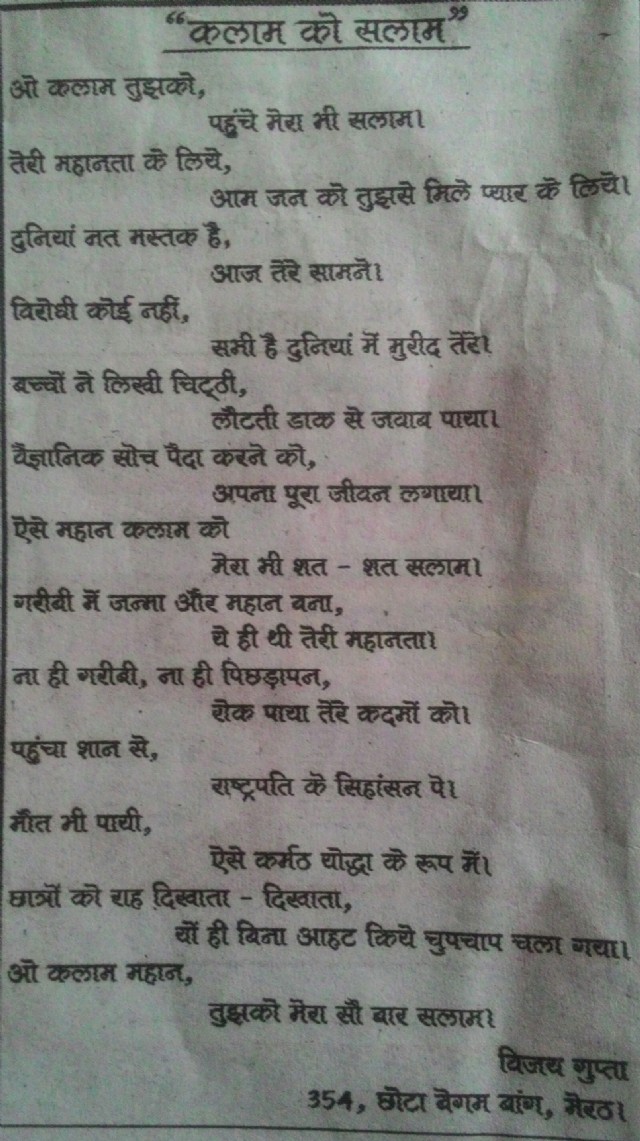 “कलाम को सलाम”
ओ कलाम तुझको,
पहुंचे मेरा भी सलाम।
तेरी महानता के लिये,
आम जन को तुझसे मिले प्यार के लिये।
दुनियां नत मस्तक है,
आज तेरे सामने।
विरोधी कोई नहीं,
सभी है दुनियां में मुरीद तेरे।
बच्चों ने लिखी चिट्ठी,
लौटती डाक से जवाब पाया।
वैज्ञानिक सोच पैदा करने को,
अपना पूरा जीवन लगाया।
ऐसे महान कलाम को
मेरा भी शत - शत सलाम।
गरीबी में जन्मा और महान बना,
ये ही थी तेरी महानता।
ना ही गरीबी, ना ही पिछड़ापन,
रोक पाया तेरे कदमों को।
पहुंचा शान से,
राष्ट्रपति के सिहांसन पे।
मौत भी पायी,
ऐसे कर्मठ योद्धा के रूप में।
छात्रों को राह दिखाता - दिखाता,
यों ही बिना आहट किये चुपचाप चला गया।
ओ कलाम महान,
तुझको मेरा सौ बार सलाम।
विजय गुप्ता
354, छोटा बेगम बांग, मेरठ।